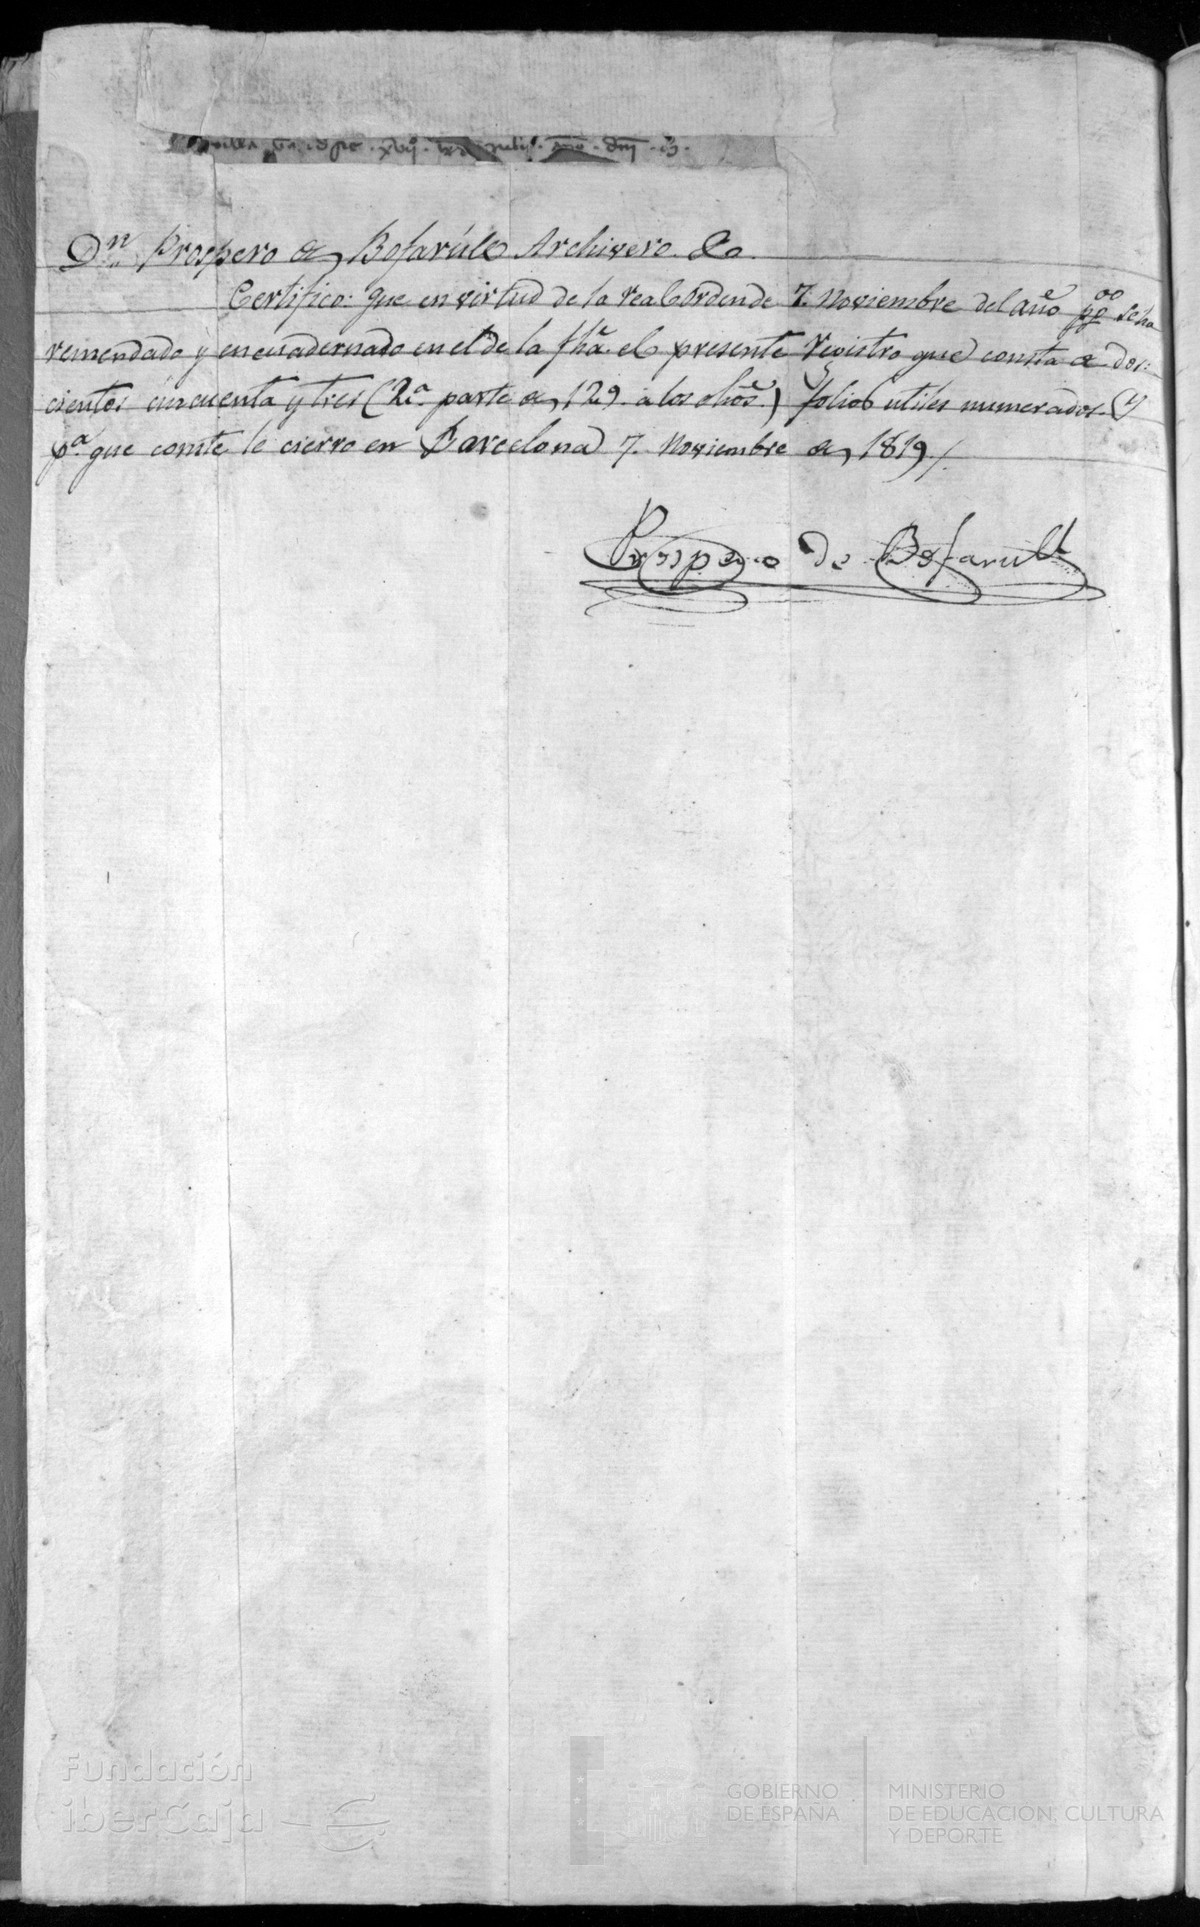 xvij
Dn. Prospero de Bofarúll Archivero &a.
Certifico: que en virtud de la real orden de 7. Noviembre del año ppdo se ha
remendado y encuadernado en el de la fha. el presente registro que consta de dos=
cientos cincuenta y tres (2a. parte de 129. a los dhos.) folios utiles numerados. Y
pa. que conste le cierro en Barcelona 7. Noviembre de 1819./.
Prospero de Bofarull
Fundación
iberCaja
GOBIERNO
DE ESPAÑA
MINISTERIO
DE EDUCACIÓN, CULTURA
Y DEPORTE